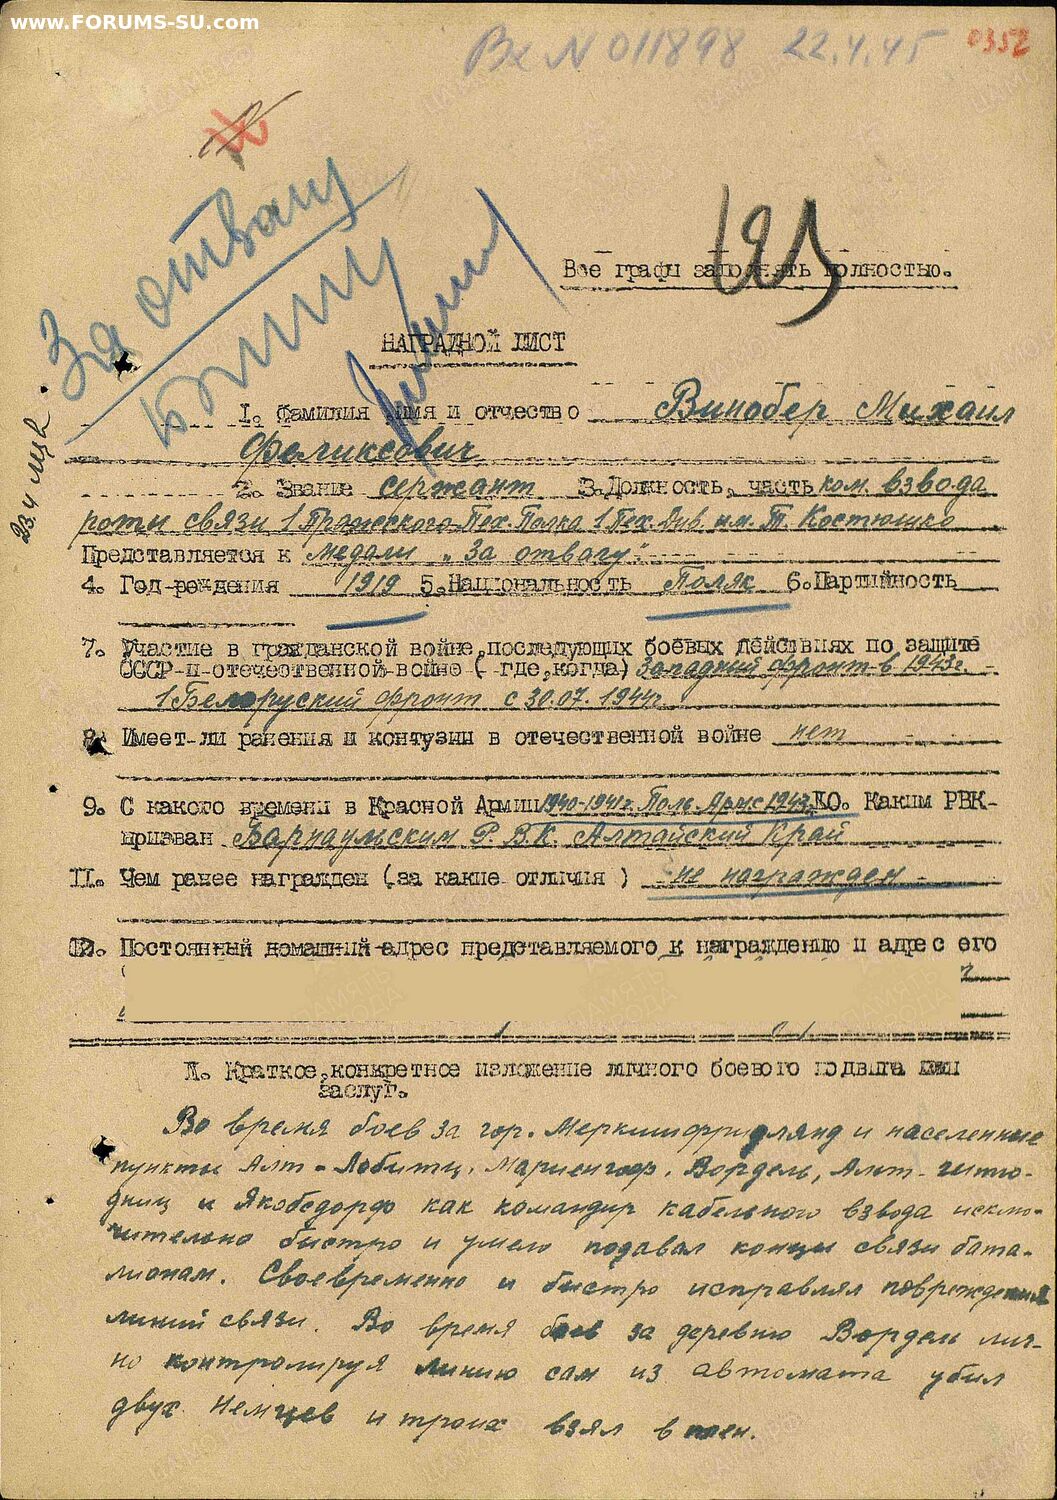 www.FORUMS-SU.com
Вх N 011898 22.4.45
0352
За отвагу
Все графы заполнять полностью.
НАГРАДНОЙ ЛИСТ
1. Фамилия имя и отчество Винобер Михаил
Феликсович
2. Звание сержант 3. Должность, часть ком. взвода
роты связи 1 Пражского Пех. Полка 1 Пех. Див. им. Т. Костюшко
Представляется к медали "За отвагу".
4. Год-рождения 1919 5. Национальность Поляк 6. Партийность
7. Участие в гражданской войне, последующих боевых действиях по защите
СССР-и-отечественной-войне (-где, когда) Западный фронт в 1943г.
1 Белоруский фронт с 30.07.1944г.
8. Имеет-ли ранения и контузии в отечественной войне нет
9. С какого времени в Красной Армии 1940-1941г. Поль. Арм с 1943. 10. Каким РВК-
призван Барнаульским Р.В.К. Алтайский Край
11. Чем ранее награжден (за какие отличия) не награжден
12. Постоянный домашний-адрес представляемого к награждению и адрес его
I. Краткое, конкретное изложение личного боевого подвига или
заслуг.
Во время боев за гор. Меркишфридлянд и населенные
пункты Алт-Лобитц, Мариенгоф, Вордель, Алт-
и Якобсдорф как командир кабельного взвода исклю-
чительно быстро и умело подавал концы связи бата-
лионам. Своевременно и быстро исправлял повреждения
линий связи. Во время боев за деревню Вордель лич-
но контролируя линию сам из автомата убил
двух Немцев и троих взял в плен.